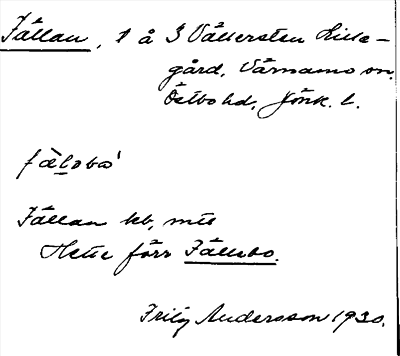 Fållan, 1 å 3 Vållersten Lilla-
gård, Värnamo sn.
Östbo hd, Jönk. l.
Fållan kb, mtl
Hette förr Fållebo.
Fritz Andersson 1930.